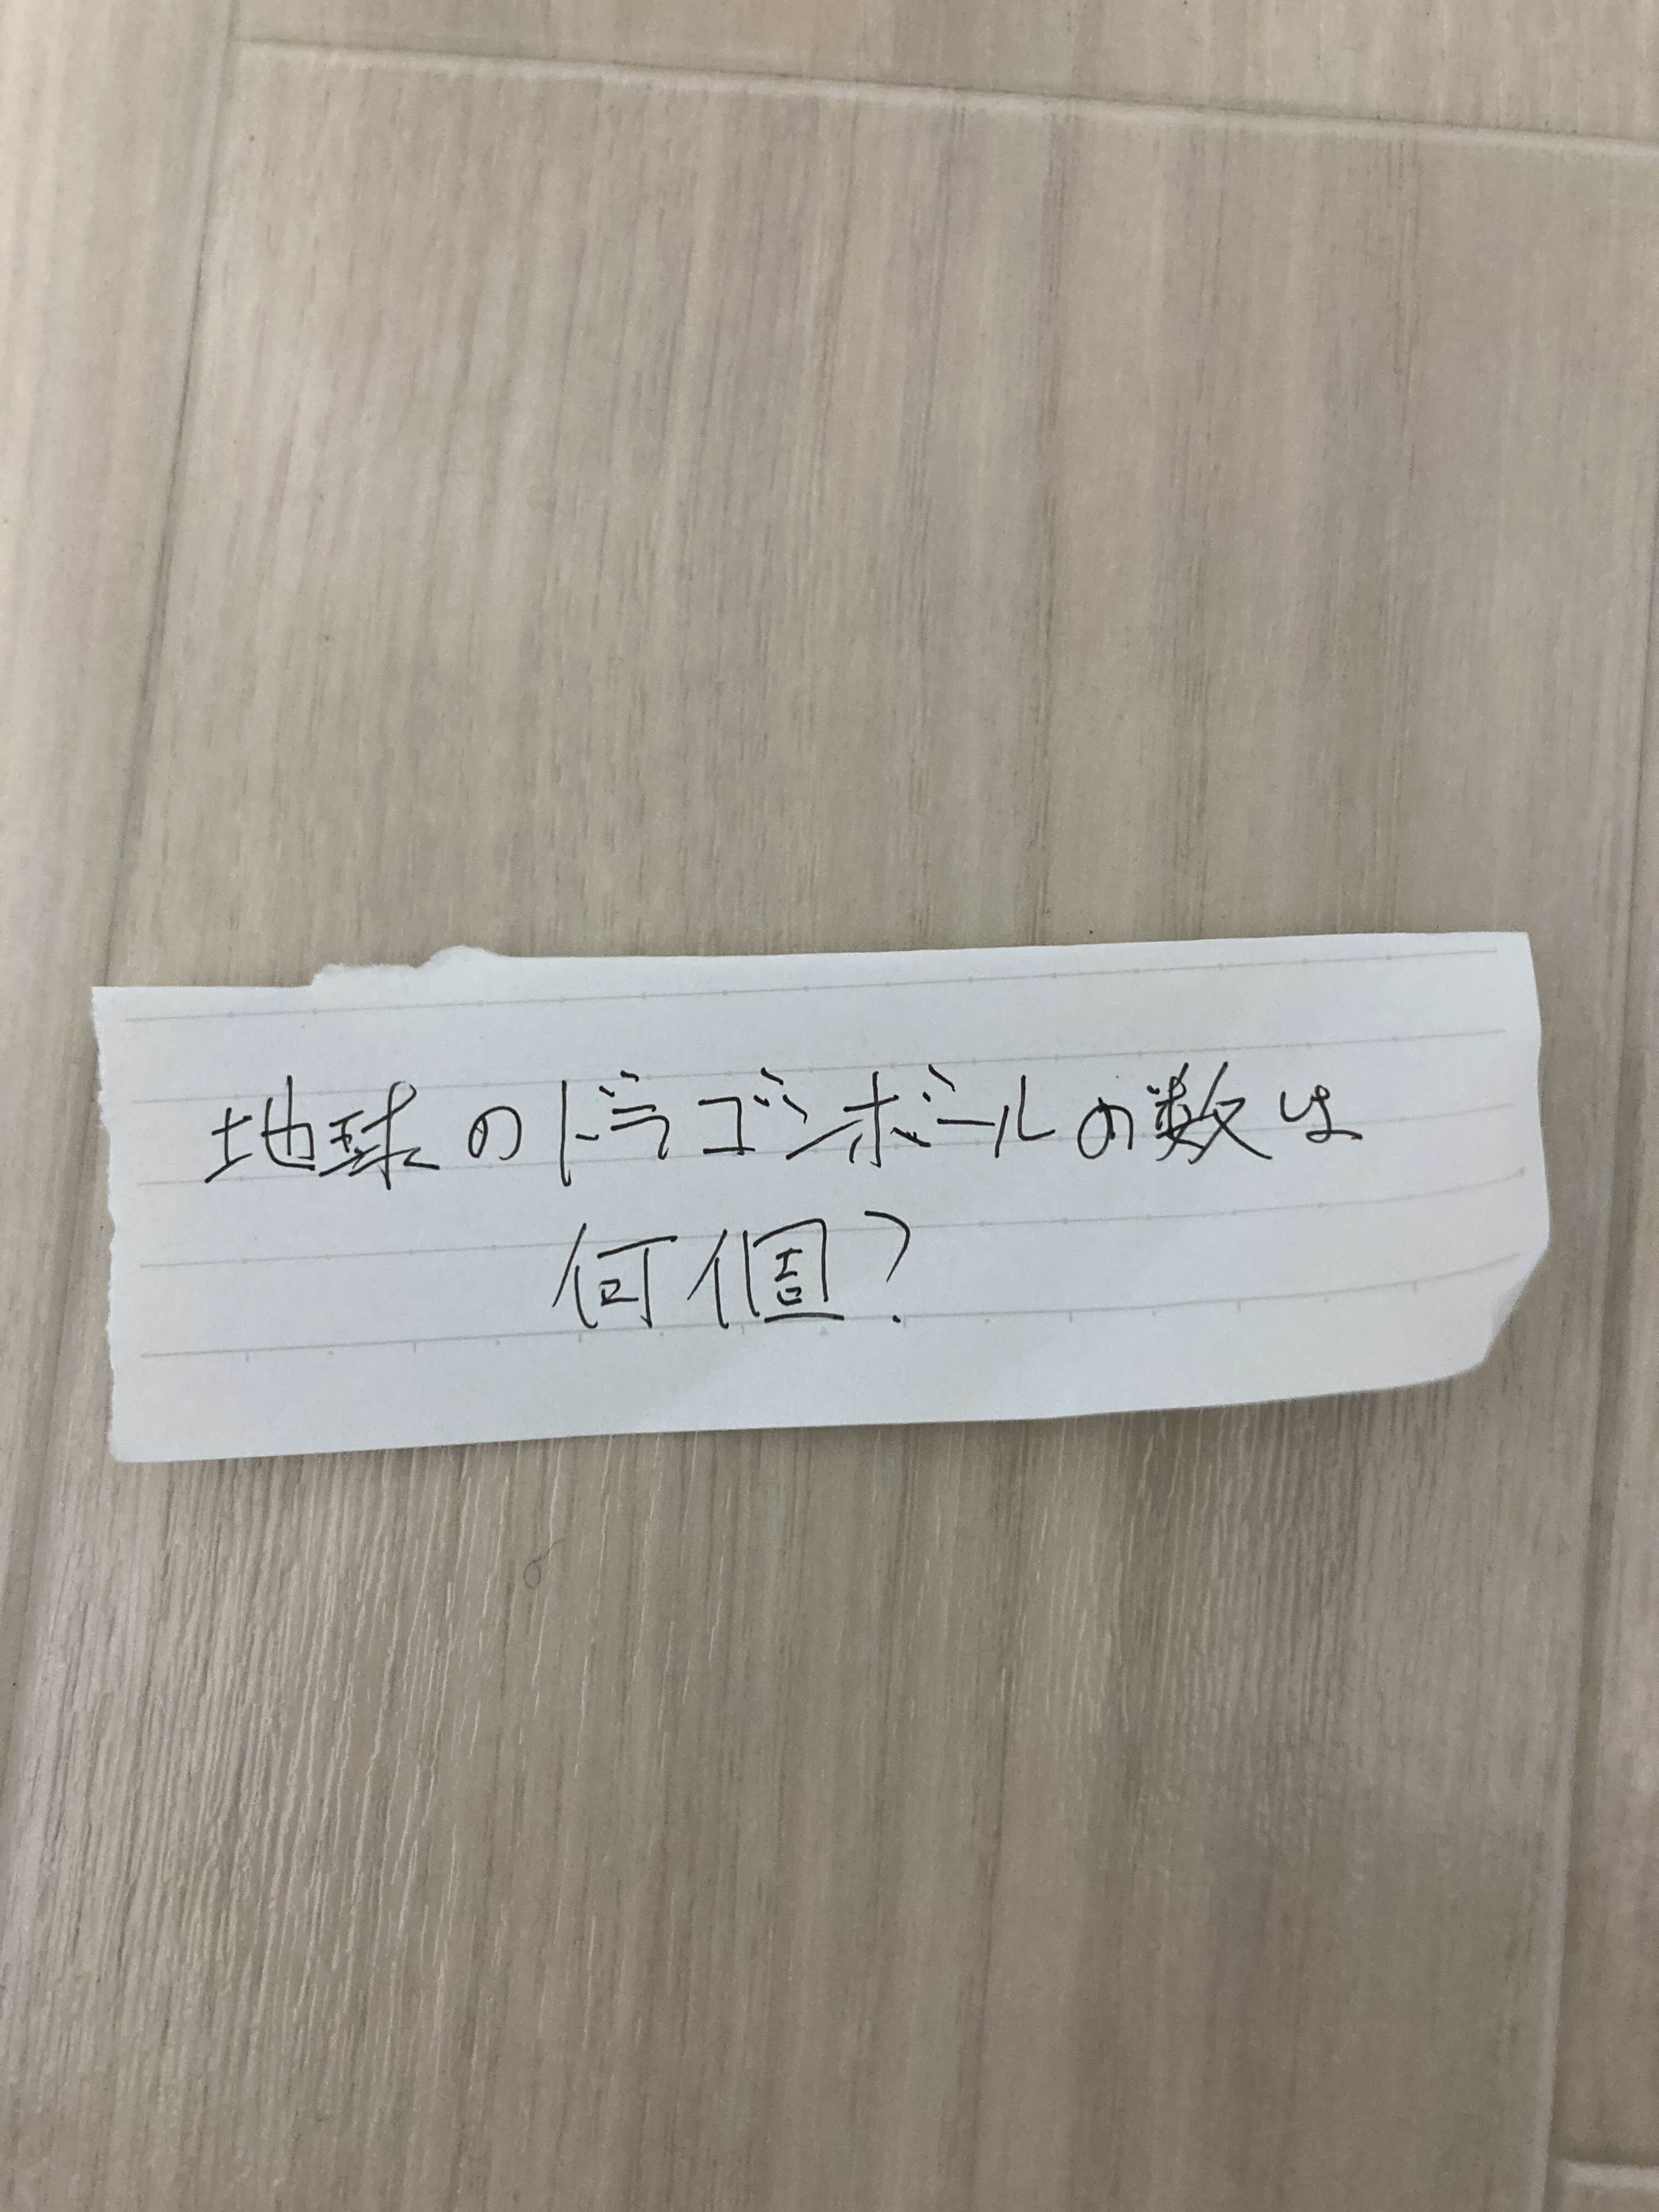 地球のドラゴンボールの数は
何個?